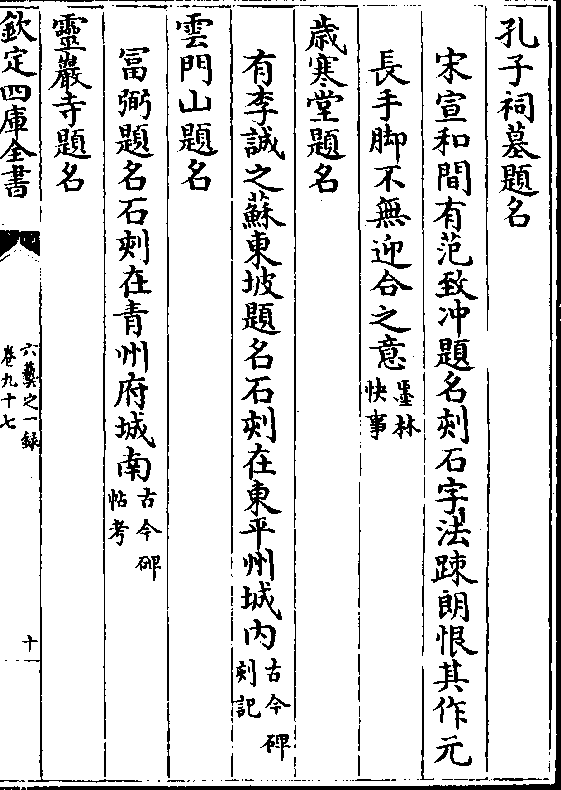 孔子祠墓題名
宋宣和間有范致冲題名刻石字法踈朗恨其作元
長手脚不無迎合之意墨林快事
歲寒堂題名
有李誠之蘇東坡題名石刻在東平州城内古今碑刻記
雲門山題名
富弼題名石刻在青州府城南古今碑帖考
靈巖寺題名
欽定四庫全書
六藝之一録
卷九十七
十